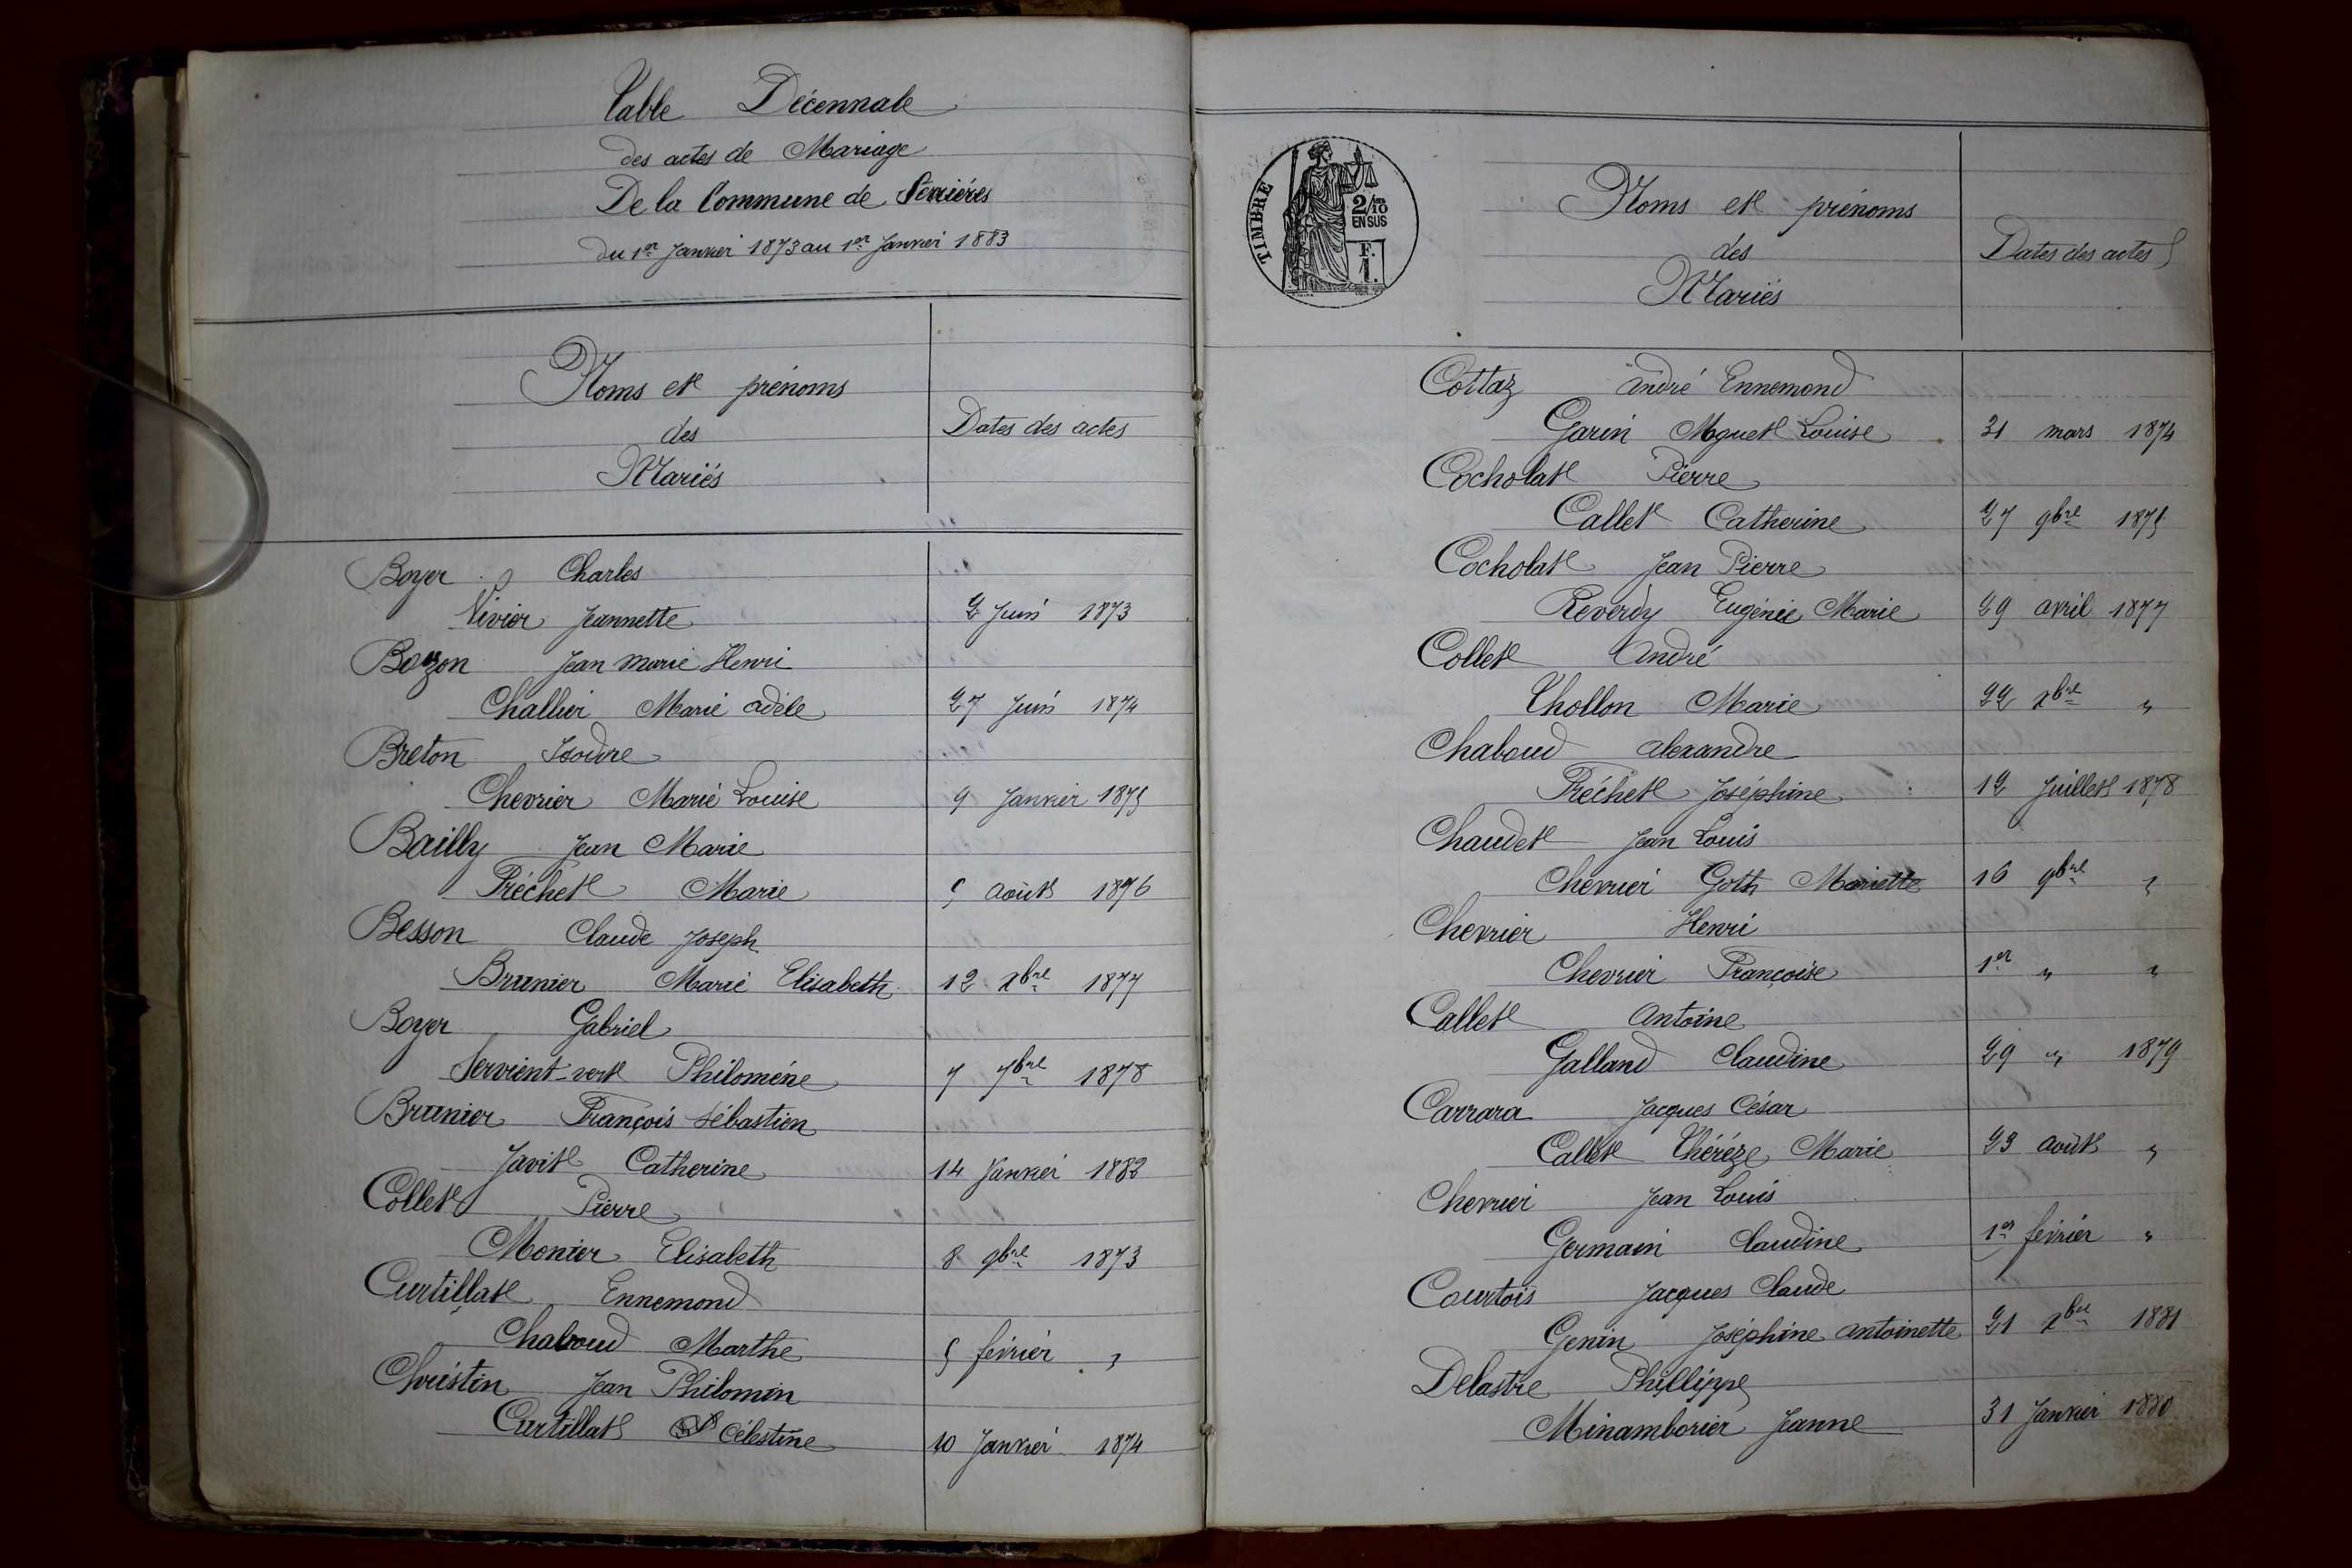 Table Décennale
des actes de Mariage
De la Commune de Serrières
du 1er Janvier 1873 au 1er Janvier 1883
Noms et prénoms
des
Mariés
Dates des actes
Boyer Charles
Vivier Jeannette 2 Juin 1873
Bozon Jean Marie Henri
Challier Marie Adèle 27 Juin 1874
Breton Isodore
Chevrier Marie Louise 9 Janvier 1875
Bailly Jean Marie
Fréchet Marie 5 août 1876
Besson Claude Joseph
Brunier Marie Elisabeth 12 xbre 1877
Boyer Gabriel
Servient-vert Philomène 7 7bre 1878
Brunier François Sébastien
Javit Catherine 14 Janvier 1882
Collet Pierre
Monier Elisabeth 8 9bre 1873
Curtillat Ennemond
Chaboud Marthe 5 février "
Christin Jean Philomin
Curtillat Célestine 10 Janvier 1874
TIMBRE
2/10
EN SUS
F.
1.
Noms et prénoms
des
Mariés
Dates des actes
Cottaz André Ennemond
Garin Moguet Louise 31 mars 1874
Cocholat Pierre
Callet Catherine 27 9bre 1875
Cocholat Jean Pierre
Reverdy Eugénie Marie 29 avril 1877
Collet André
Thollon Marie 22 xbre "
Chaboud Alexandre
Fréchet Joséphine 12 Juillet 1878
Chaudet Jean Louis
Chevrier Goth Mariette 16 9bre "
Chevrier Henri
Chevrier Françoise 1er " "
Callet Antoine
Galland Claudine 29 " 1879
Carrara Jacques César
Callet Thérèze Marie 23 août "
Chevrier Jean Louis
Germain Claudine 1er février "
Courtois Jacques Claude
Genin Joséphine Antoinette 21 xbre 1881
Delastre Phillippe
Minamborier Jeanne 31 Janvier 1880